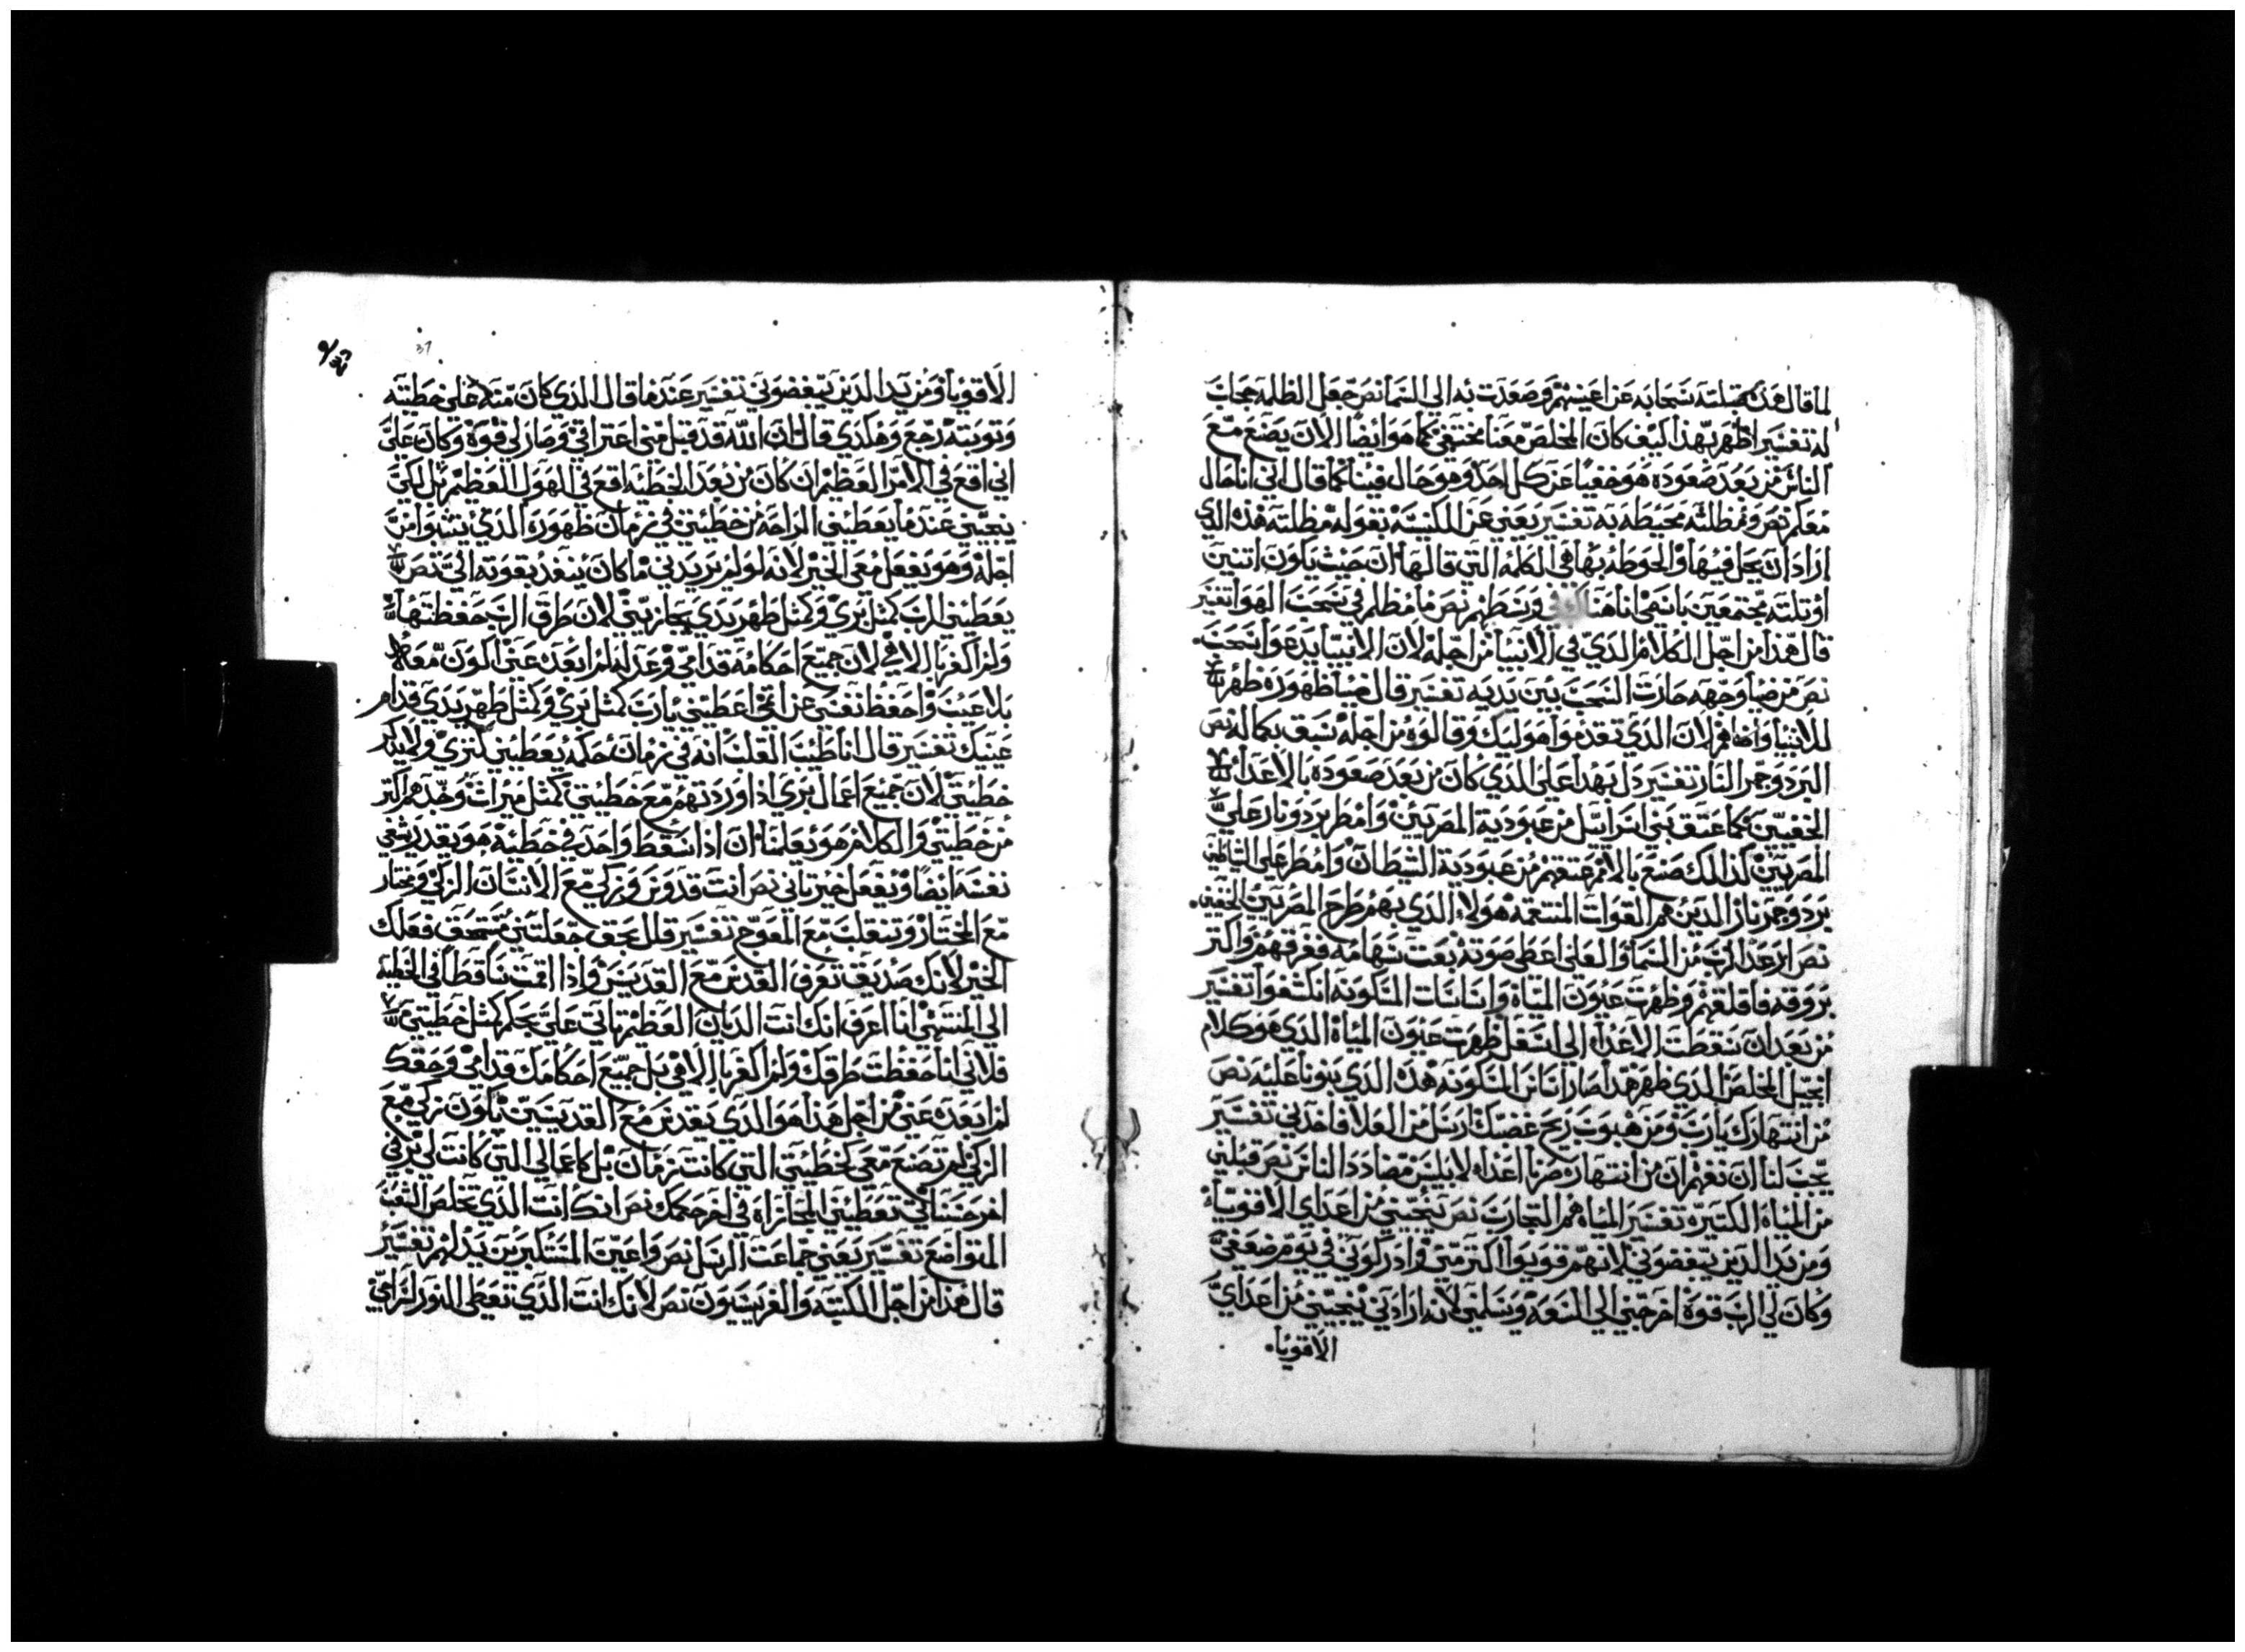 لما قال هذا قبلته سحابه عن اعينهم وصعدت به الي السما نص جعل الظلمه حجاب
له تفسير اظهر بهذا كيف كان المخلص معنا مختفي كما هو ايضا الان يصنع مع
الناس من بعد صعوده هو خفيا عن كل احد وهو حال فينا كما قال اني انا حال
معكم نص ومظلته محيطه به تفسير يعني عن الكنيسه بقوله مظلته هذه الذي
اراد ان يحل فيها والحوطه بها هي الكلمه التي قالها ان حيث يكون اتنين
او تلته مجتمعين باسمي انا هناك في وسطهم نص ما مظلم في سحب الهوا تفسير
قال هذا من اجل الكلام الذي في الانبيا من اجله لان الانبيا يدعوا سحب
نص من ضيا وجهه جازت السحب بين يديه تفسير قال ضيا ظهوره ظهر
للانبيا وافناهم لان الذي تقدموا هوليك وقالوه من اجله سبق بكماله نص
البرد وجمر النار تفسير دل بهدا علي الذي كان من بعد صعوده بالاعدا
الخفيين كما عتق بني اسراييل من عبودية المصريين وامطر برد ونار علي
المصريين كذالك صنع بالامم عتقهم من عبودية الشيطان وامطر علي الشياطين
برد وجمر نار الذين هم القوات المنتقمه هولاء الذي بهم طرح المصريين الخفيين
نص ارعد الرب من السما والعلي اعطي صوته بعت سهامه ففرقهم واكتر
بروقه فاقلقهم وظهرت عيون المياه واساسات المسكونه انكشفوا تفسير
من بعد ان سقطت الاعدا الي اسفل ظهرت عيون المياه الذي هو كلام
انجيل المخلص الذي ظهر هذا صار اساس المسكونه هذه الذي بنونا عليه نص
من انتهارك يارب ومن هبوب ريح غضبك ارسل من العلا فاخدني تفسير
يجب لنا ان نفهم ان من انتهار ضربا اعداه لابليس مضادد الناس نص قبلني
من المياه الكتيره تفسير المياه هم التجارب نص ينجيني من اعداي الاقويا
ومن يد الذين يبغضوني لانهم قويوا اكتر مني وادركوني في يوم ضعفي
وكان لي الرب قوه اخرجني الي السعه ويسلمني لانه ارادني ينجيني من اعداي
الاقويا
37
الاقويا ومن يد الذين يبغضوني تفسير عندما قال الذي كان منه علي خطيته
وتوبته رجع وهكذي قال ان الله قد قبل مني اعترافي وصار لي قوه وكان علي
اني اقع في الامر العظيم ان كان من بعد الخطيه اقع في الهول العظيم بل لكي
ينجيني عندما يعطيني الراحه من خطيتي في زمان ظهوره الذي يتنبوا من
اجله وهو يفعل معي الخير لانه لو لم يريدني ما كان ينفد بقوته الي نص
يعطيني الرب كمتل بري وكمتل طهر يدي يجازيني لان طرق الرب حفظتها
ولم اكفر بالاهي لان جميع احكامه قدامي وعدله لم ابعده عني اكون معه
بلا عيب واحفظ نفسي عن اتمي اعطيني يارب كمتل بري وكمتل طهر يدي قدام
عينيك تفسير قال انا طيب القلب انه في زمان حكمه يعطيني كبري ولا يدكر
خطيتي لان جميع اعمال بري اذا وردتهم مع خطيتي كمتل ميزان وجدهم اكتر
من خطيتي والكلام هو يعلمنا ان اذا سقط واحد في خطية هو يقدر يشفي
نفسه ايضا ويفعل خير تاني نص انت قدوس وزكي مع الانسان الزكي ومختار
مع المختار وتنقلب مع المعوج تفسير قال بحق جعلتني مستحق فعلك
الخير لانك صديق تعرف القدس مع القديس واذا اقمت ساقطا في الخطيه
الي المنتهي انا اعرف انك انت الديان العظيم تاتي علي بحكم كمثل خطيتي
فلاني انا حفظت طرقك ولم اكفر بالاهي بل جميع احكامك قدامي وحقك
لم ابعده عني من اجل هذا هو الذي يتقدس مع القديسين يكون زكي مع
الزكي لم تصنع معي كخطيتي التي كانت بزمان بل كاعمالي التي كانت لي بر في
اخر حسناتي تعطيني المجازاه في اخر حكمك نص انك انت الذي تخلص الشعب
المتواضع تفسير يعني جماعت الرسل نص واعين المستكبرين يذلهم تفسير
قال هذا من اجل الكتبه والفريسيون نص لانك انت الذي تعطي النور لسراجي